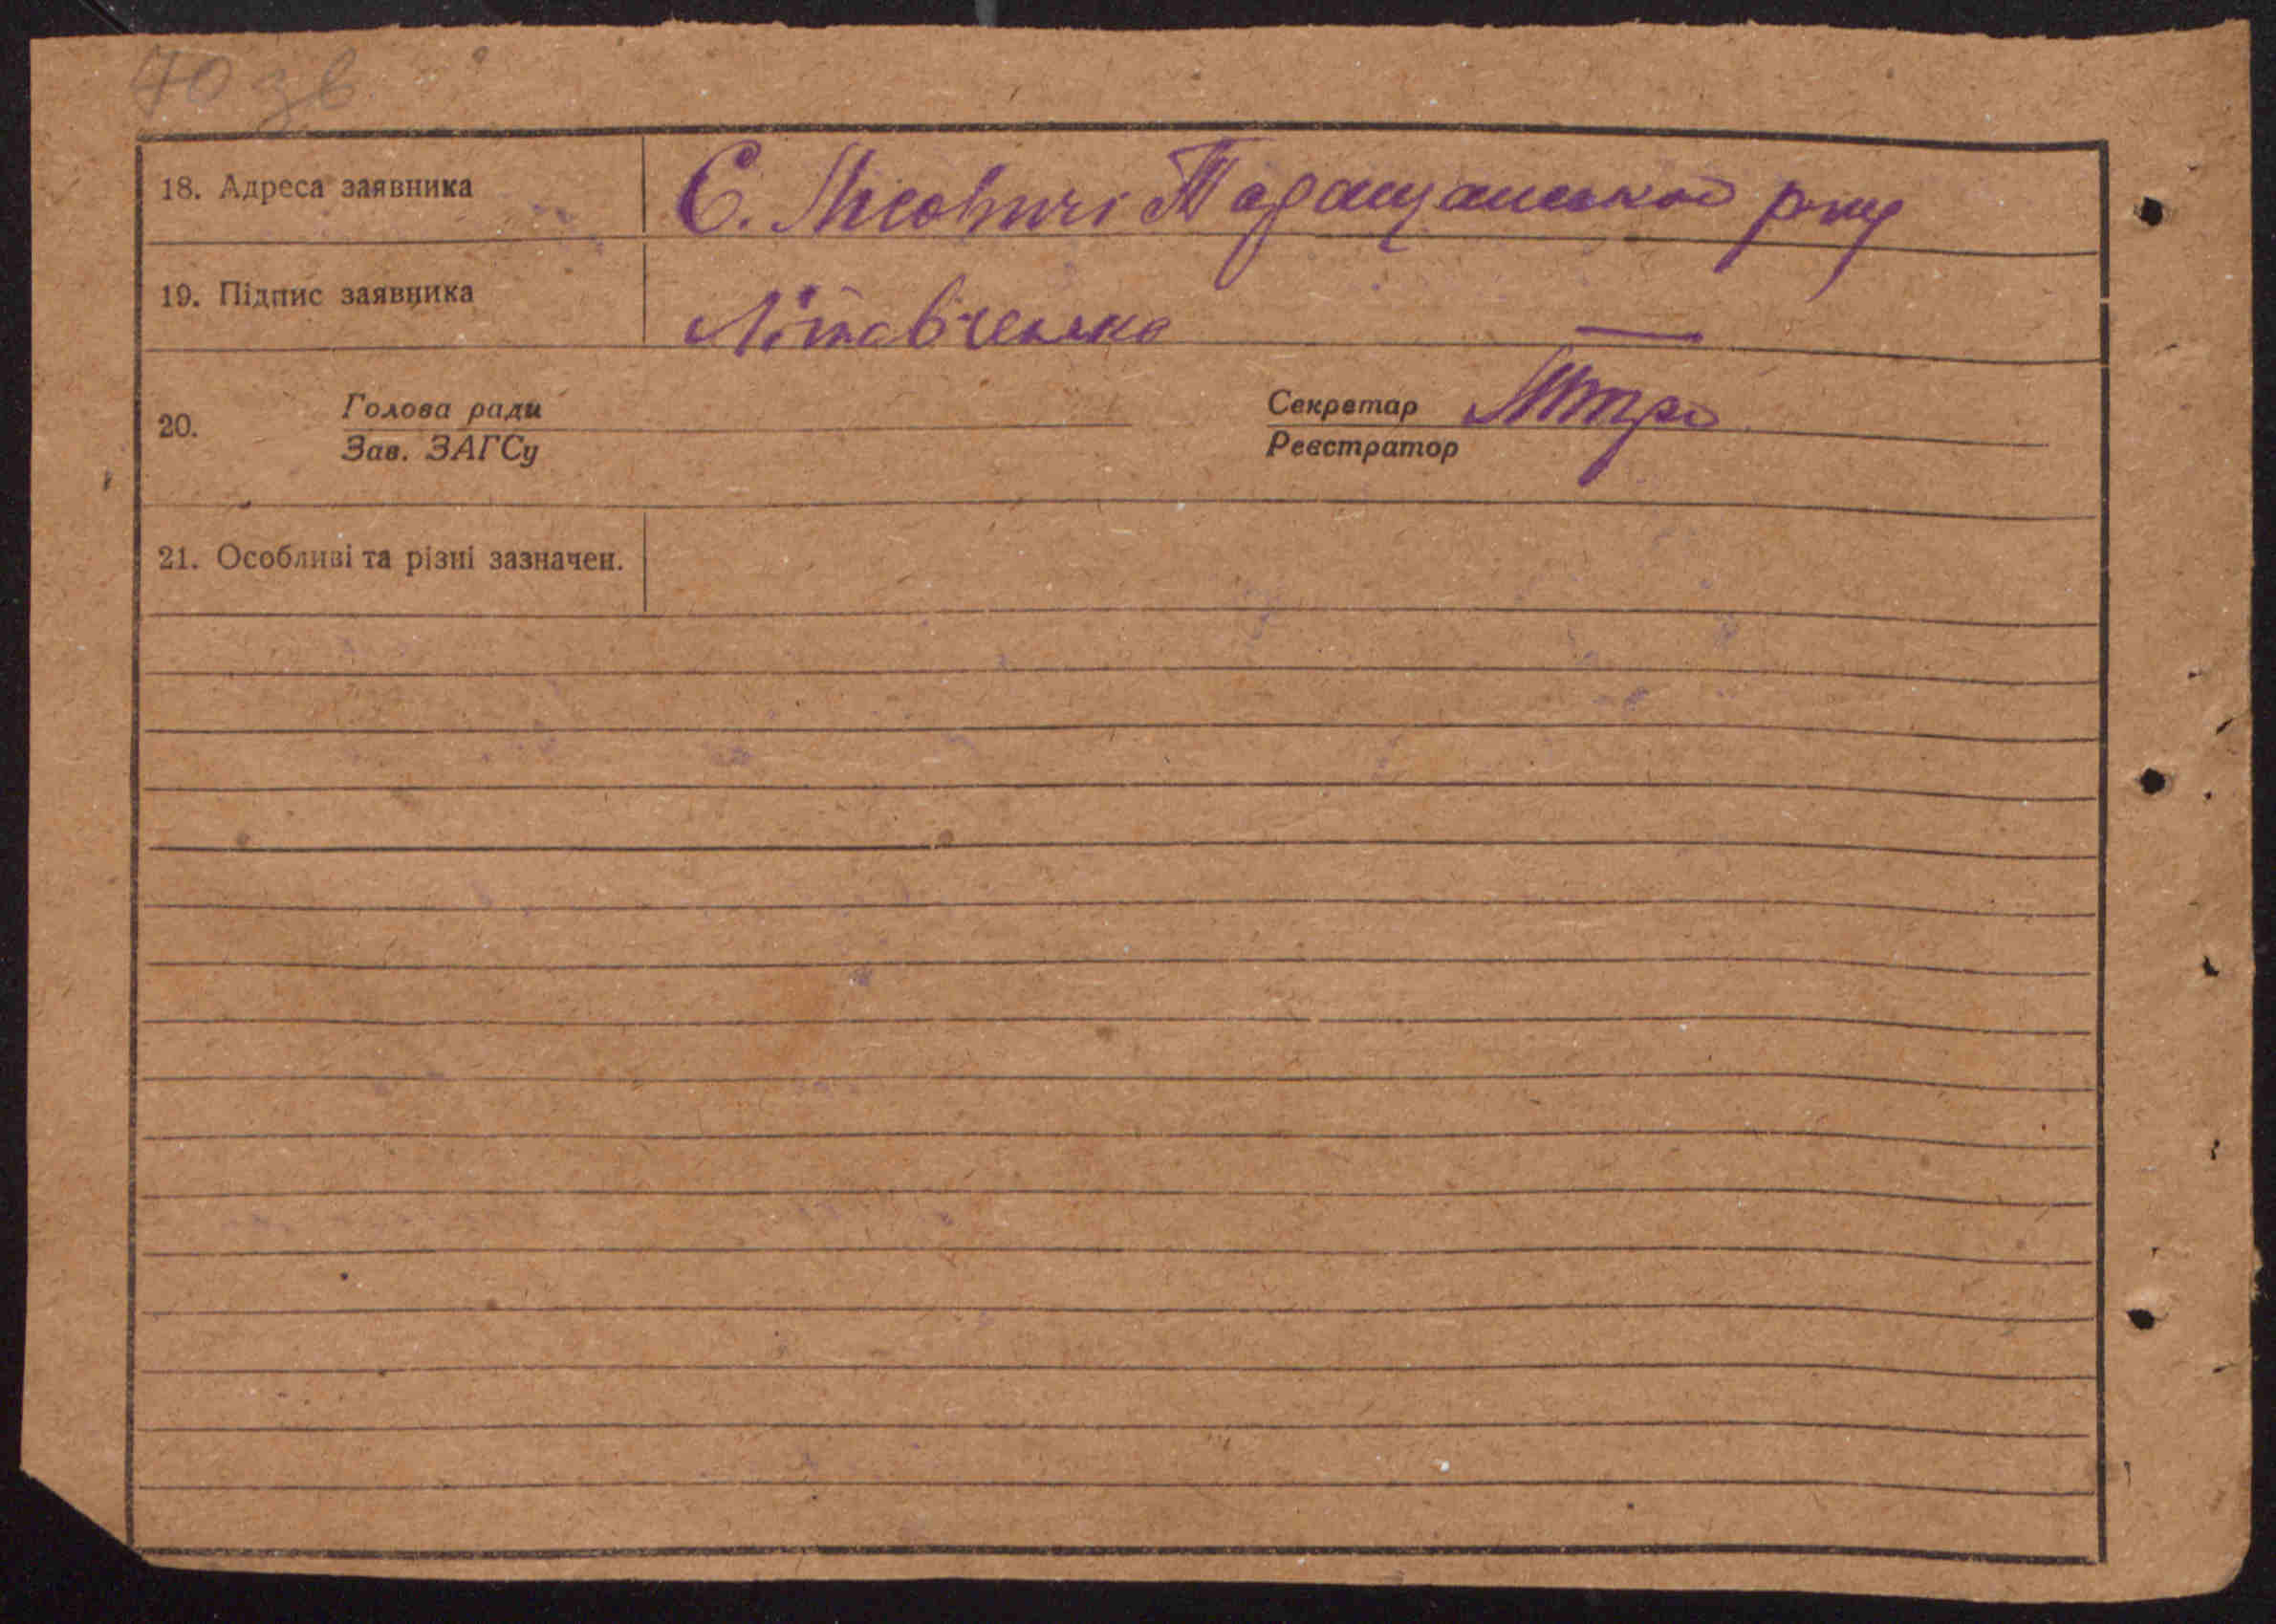 70 зв
18. Адреса заявника С. Лісовичі Таращанського р-ну
19. Підпис заявника Літовченко —
20. Голова ради Секретар
Зав. ЗАГСу Реєстратор
21. Особливі та різні зазначен.